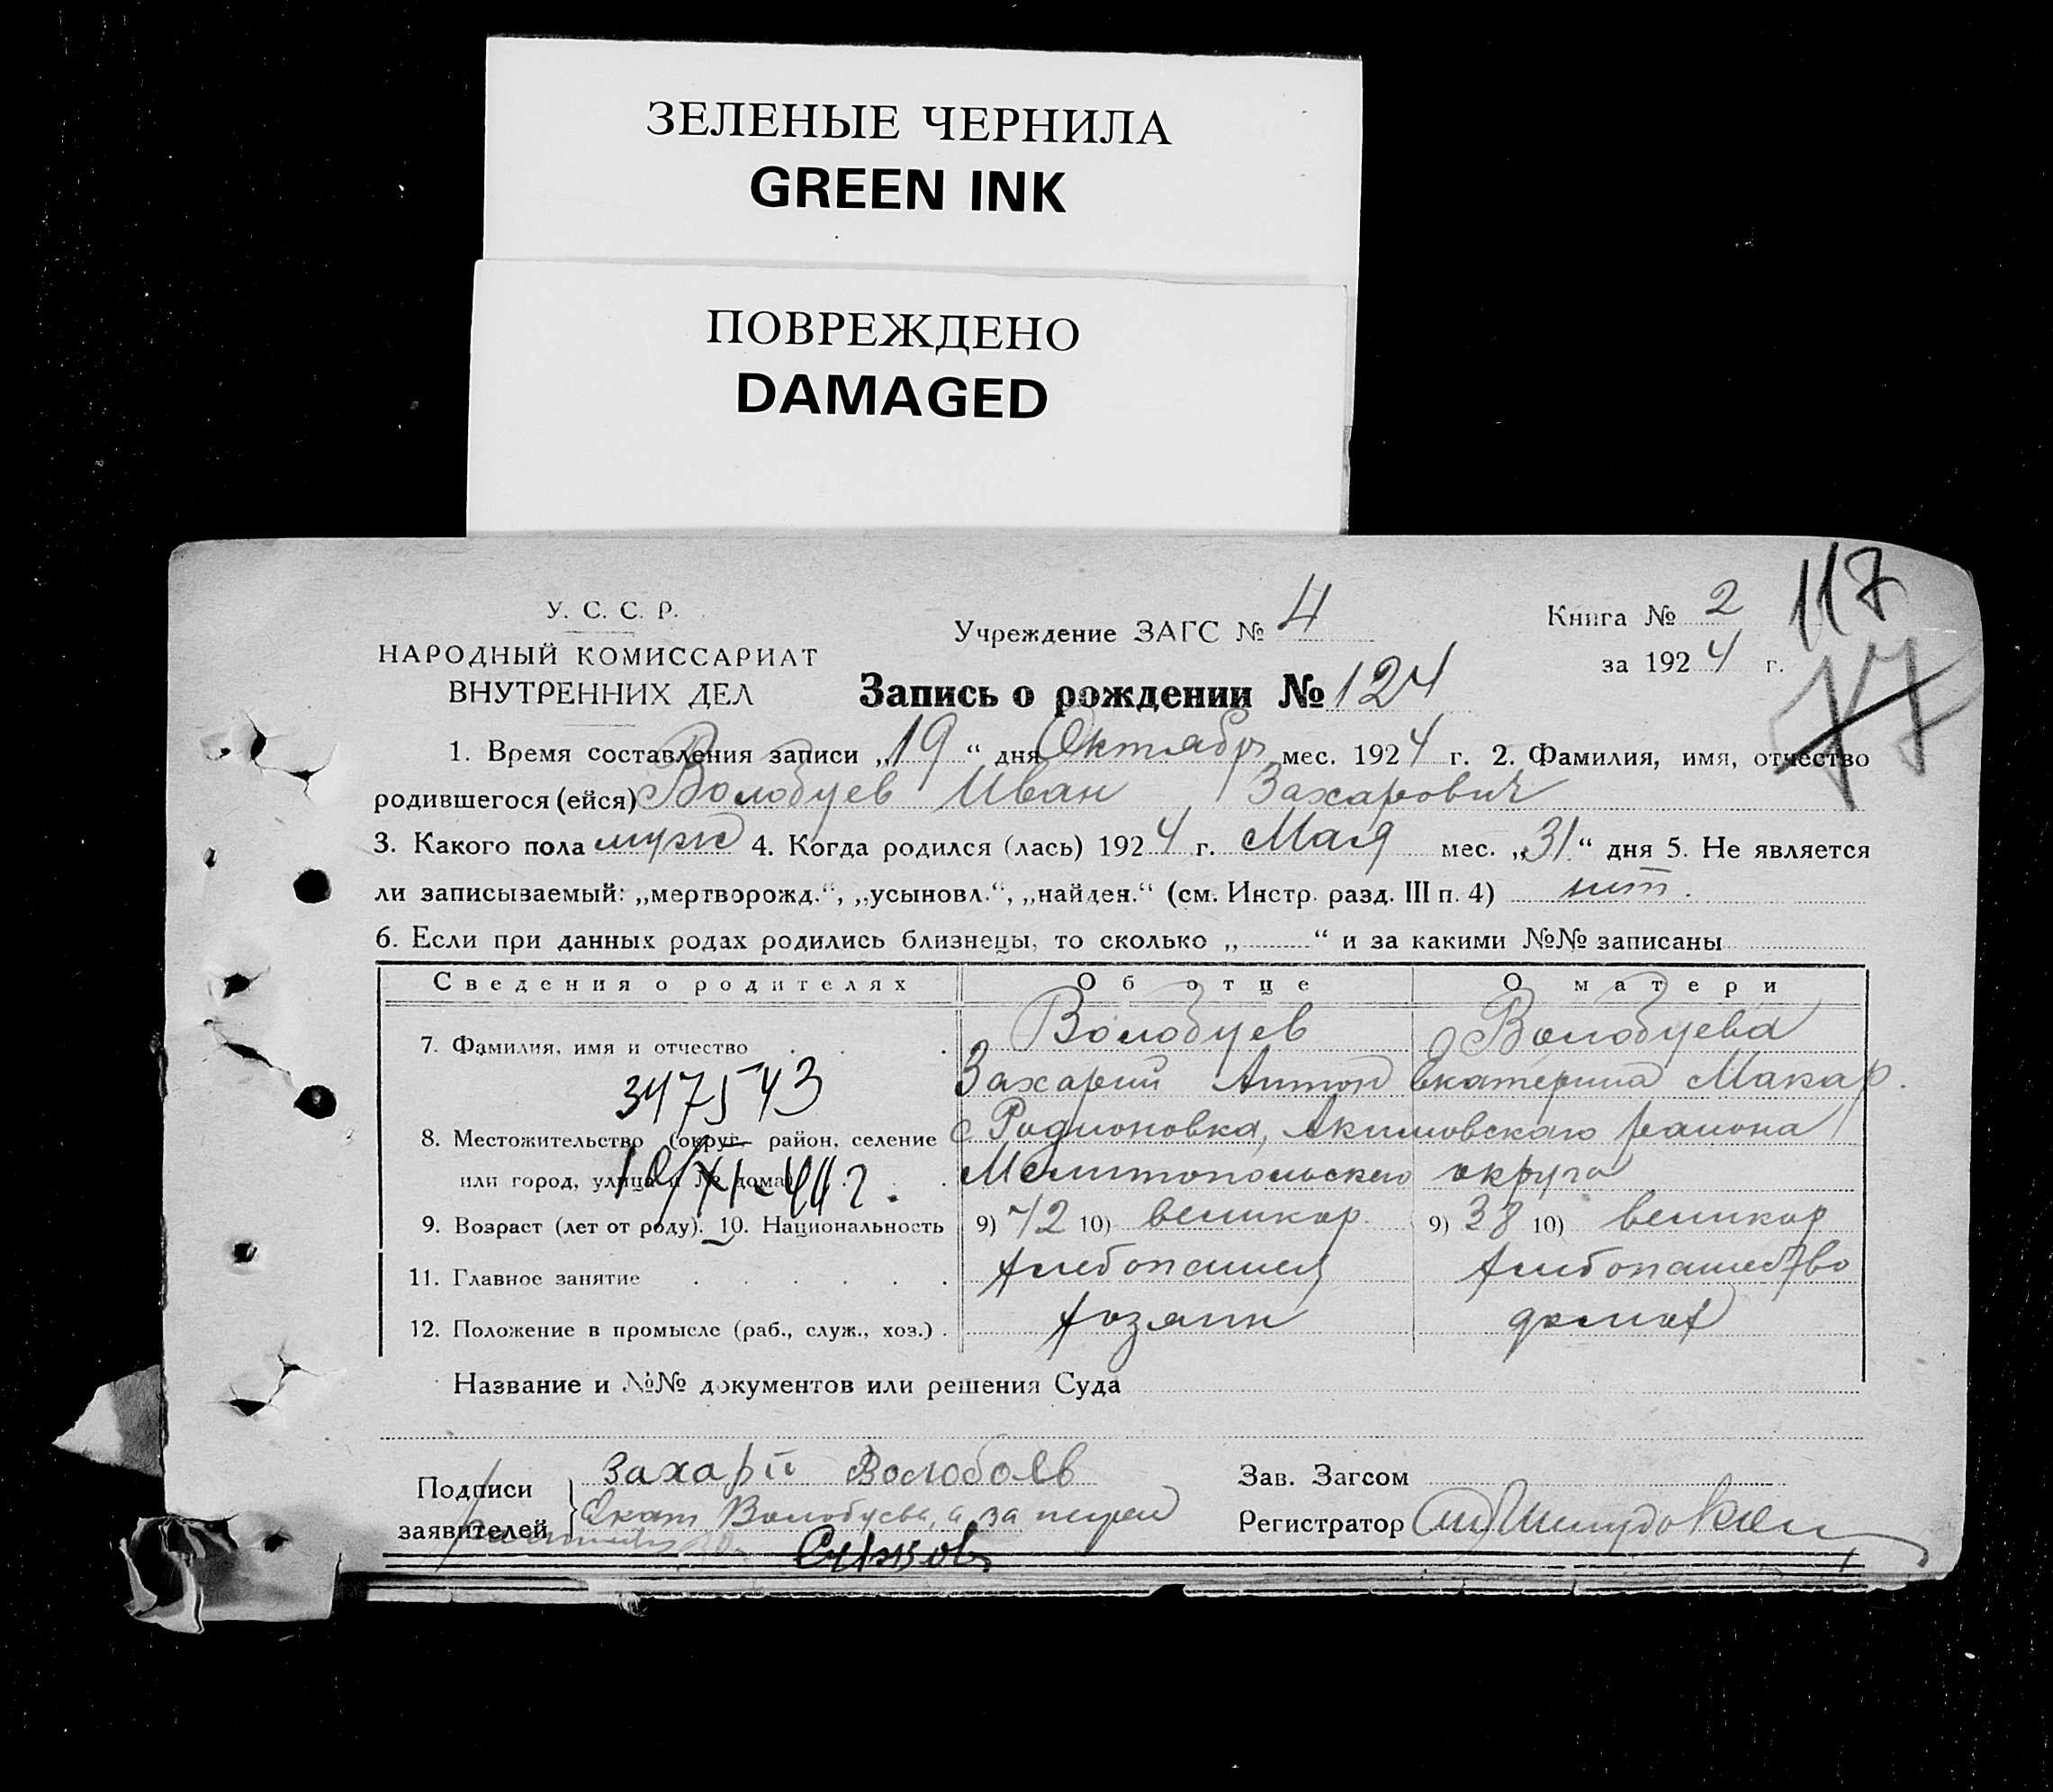 ЗЕЛЕНЫЕ ЧЕРНИЛА
GREEN INK
ПОВРЕЖДЕНО
DAMAGED
У. С. С. Р.
НАРОДНЫЙ КОМИССАРИАТ
ВНУТРЕННИХ ДЕЛ
Учреждение ЗАГС № 4
Книга № 2
за 1924 г.
117
77
Запись о рождении № 124
1. Время составления записи „19“ дня Октября мес. 1924 г. 2. Фамилия, имя, отчество
родившегося (ейся) Волобуев Иван Захарович
3. Какого пола муж 4. Когда родился (лась) 1924 г. Мая мес. „31“ дня 5. Не является
ли записываемый: „мертворожд.“, „усыновл.“, „найден.“ (см. Инстр. разд. III п. 4) нет.
6. Если при данных родах родились близнецы, то сколько „ “ и за какими №№ записаны
Сведения о родителях Об отце О матери
Волобуев Волобуева
7. Фамилия, имя и отчество
Захарий Антон Екатерина Макар.
347543
8. Местожительство (округ, район, селение с Родионовка, Акимовского района
или город, улица и № дома) Мелитопольского округа
9. Возраст (лет от роду). 10. Национальность 9) 42 10) великор. 9) 38 10) великор
11. Главное занятие хлебопашец хлебопашество
12. Положение в промысле (раб., служ., хоз.) хозяин домох
Название и №№ документов или решения Суда
Подписи
заявителей
Захарий Волобоев
Екат Волобуева, а за неграм
Сужков
Зав. Загсом
Регистратор